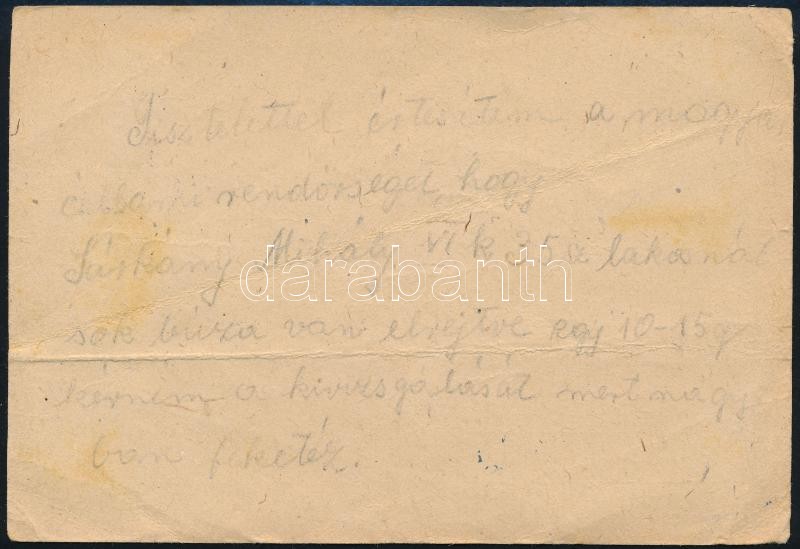 Tisztelettel értesitem a magya,
csillaki rendőrséget, hogy
Sárkány Mihály VI k 35 a lakásnál
sok búza van elrejtve egy 10-15 q
kérném a kivizsgálását mert nagy
ban feketéz.
darabanth